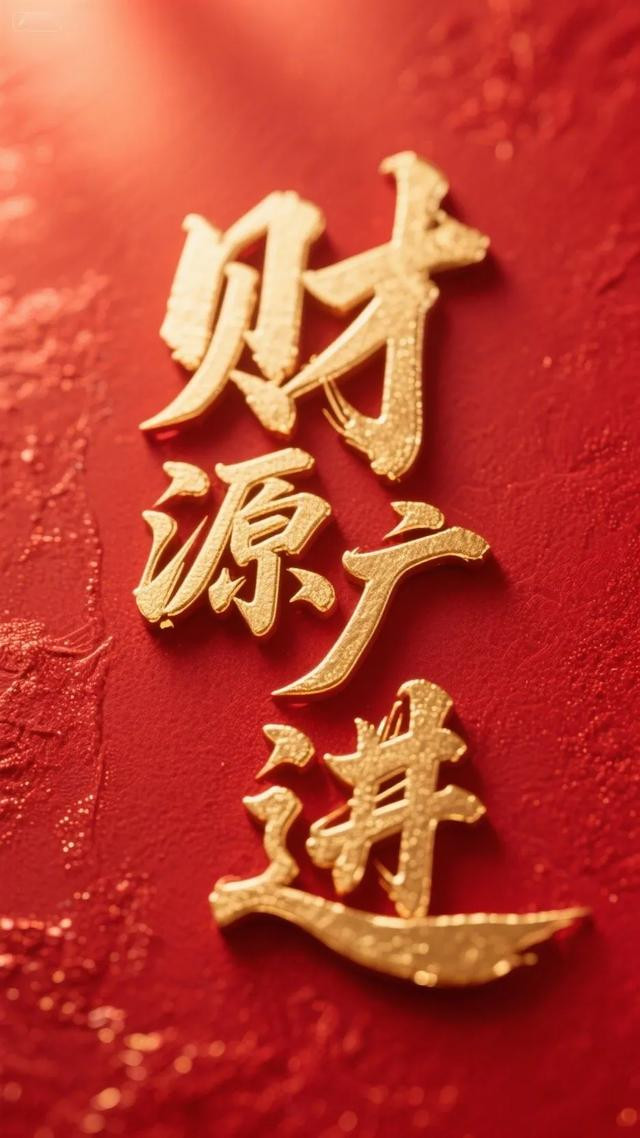 财
源广
进